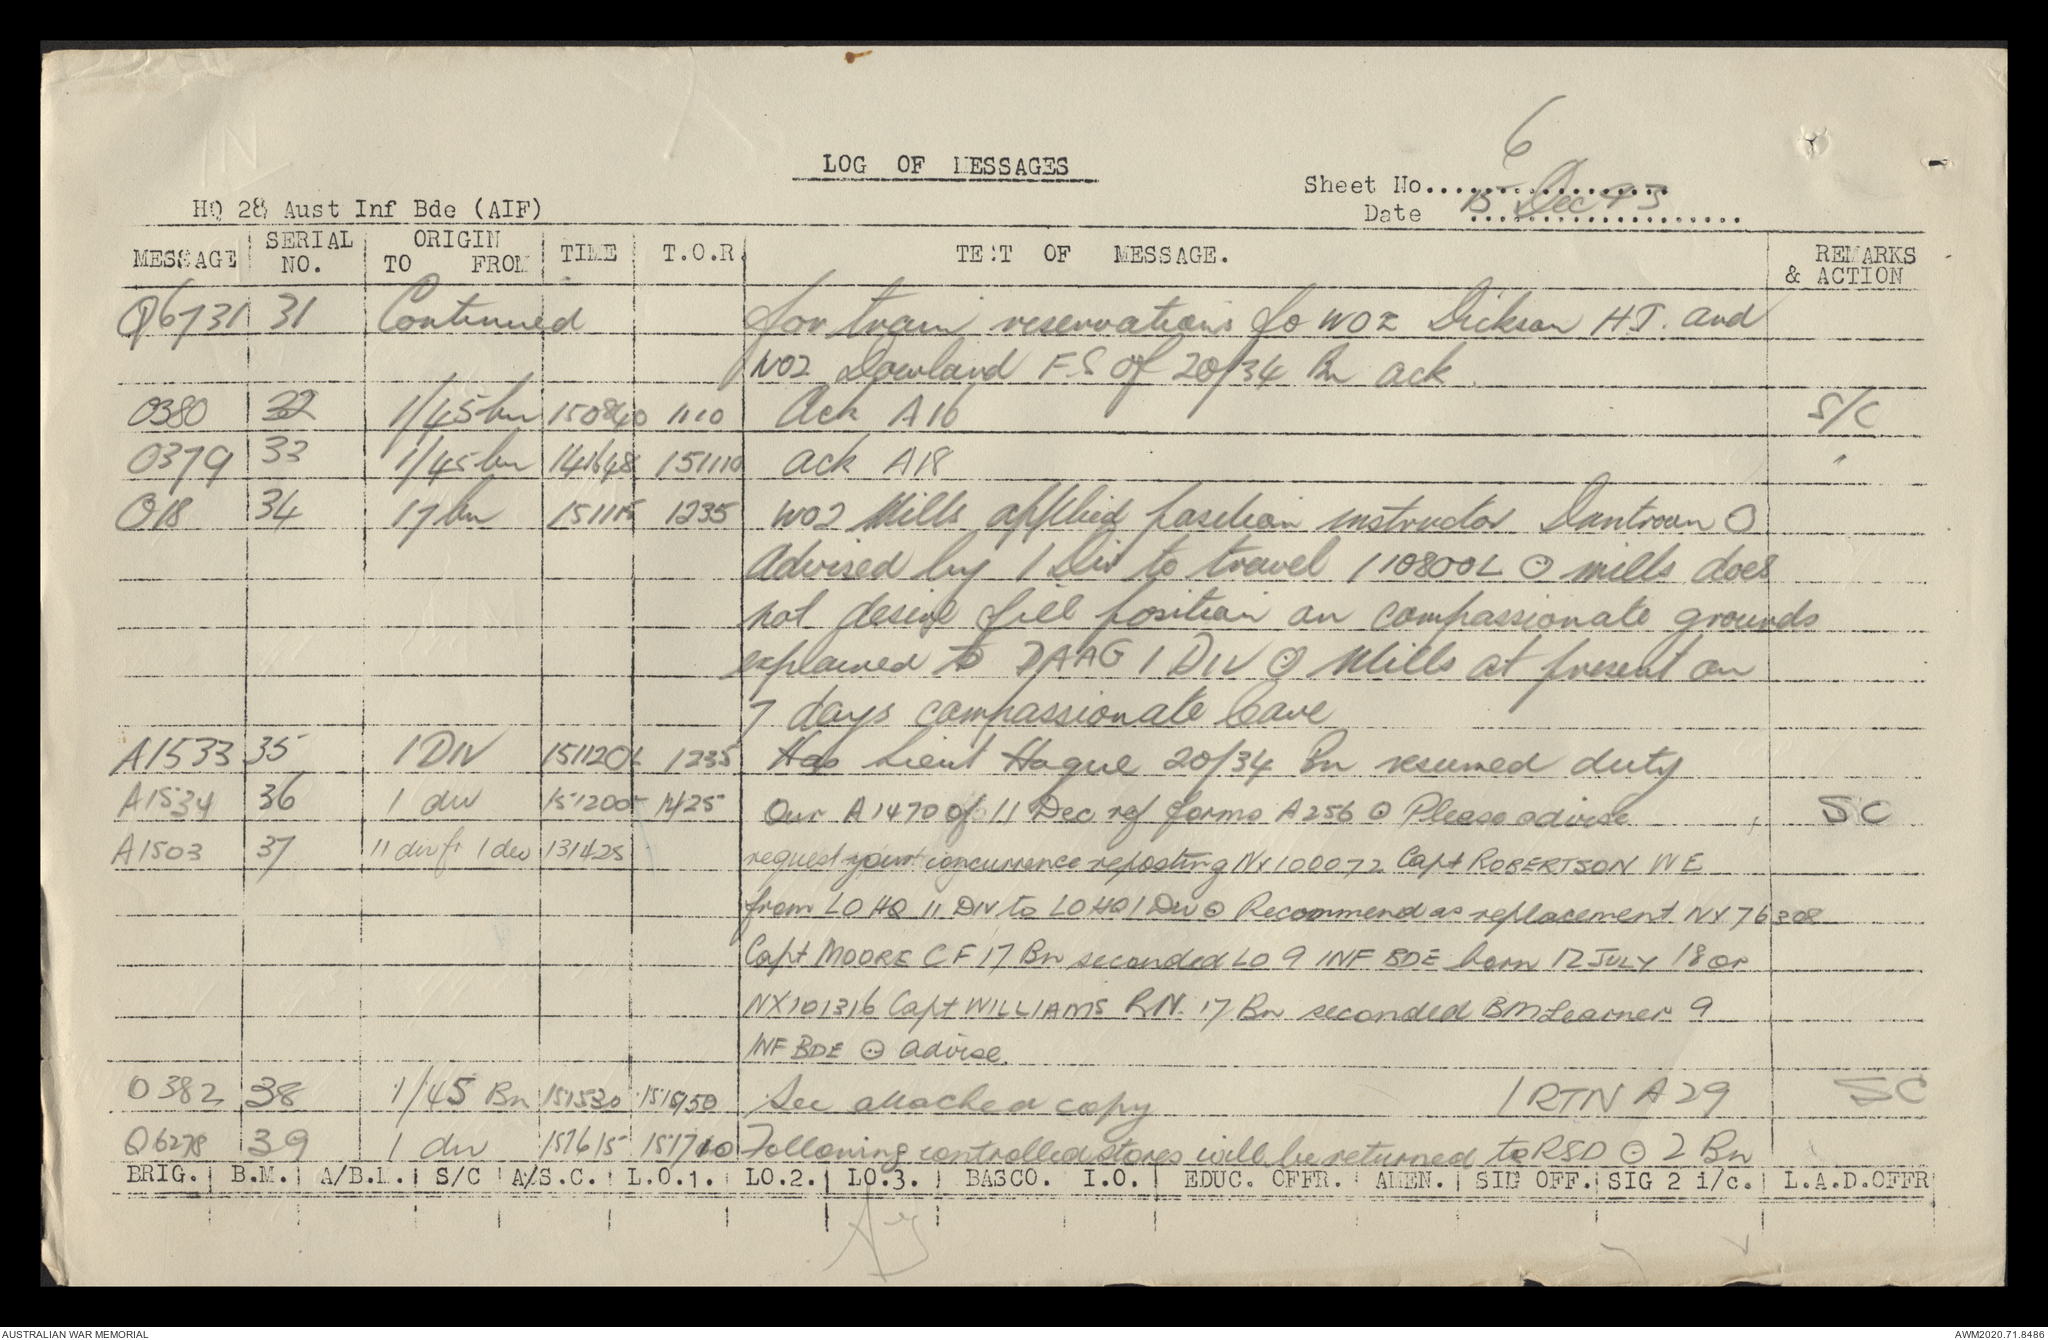 LOG OF MESSAGES
6
Sheet No...................
HQ 28 Aust Inf Bde (AIF)
Date 15 Dec 43
MESSAGE SERIAL NO. ORIGIN TO FROM TIME T.O.R. TEXT OF MESSAGE. REMARKS & ACTION
Q6731 31 Continued for train reservations fo WO2 Dickson H.J. and
WO2 Dowland F.S of 20/34 Bn ack.
O380 32 1/45 bn 150840 1110 Ack A16 S/C
O379 33 1/45 bn 141648 151110 ack A18 "
O18 34 17 bn 151115 1235 WO2 Mills applied position instructor Duntroon O
Advised by 1 Div to travel 110800L ⊙ mills does
not desire fill position on compassionate grounds
explained to DAAG 1 DIV ⊙ Mills at present on
7 days compassionate leave
A1533 35 1 DIV 151120L 1235 Has Lieut Hague 20/34 Bn resumed duty
A1534 36 1 div 151200 1425 Our A1470 of 11 Dec ref forms A256 ⊙ Please advise SC
A1503 37 11 div fr 1 div 131425 request your concurrence reposting NX100072 Capt ROBERTSON WE
from LO HQ 11 DIV to LO HQ 1 Div ⊙ Recommend as replacement NX76308
Capt MOORE C F 17 Bn seconded LO 9 INF BDE born 12 JULY 18 or
NX101316 Capt WILLIAMS R.N. 17 Bn seconded BM Learner 9
INF BDE ⊙ advise.
O382 38 1/45 Bn 151530 See attached copy 1 RTN A29 SC
Q6278 39 1 div 151615 151710 Following controlled stores will be returned to RSD ⊙ 2 Bn
BRIG. B.M. A/B.M. S/C A/S.C. L.O.1. LO.2. LO.3. BASCO. I.O. EDUC. OFFR. AMEN. SIG OFF. SIG 2 i/c. L.A.D.OFFR
AUSTRALIAN WAR MEMORIAL
AWM2020.71.8486